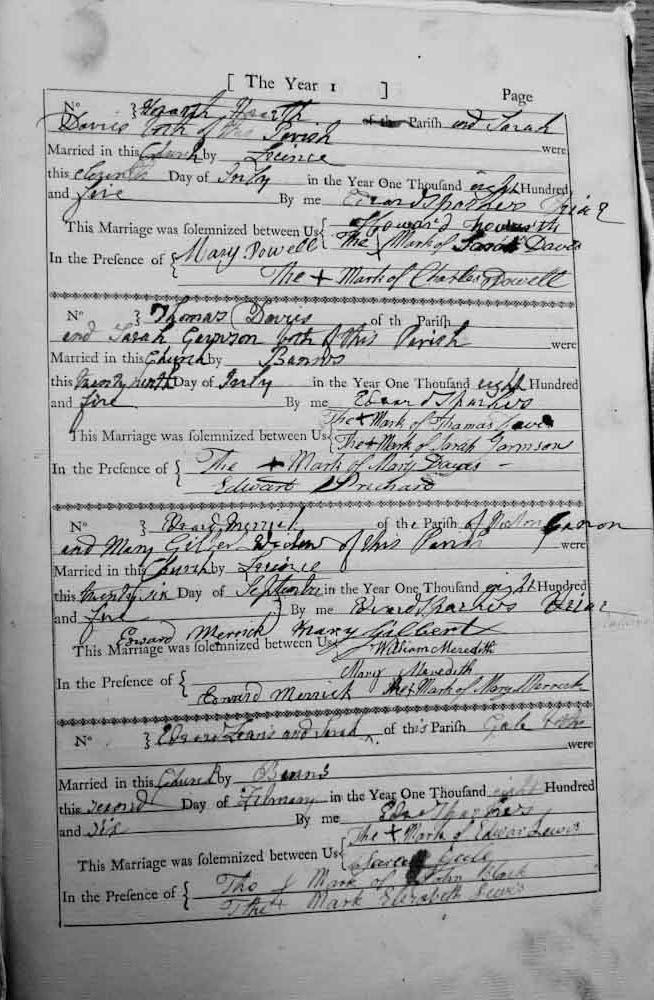 [ The Year 1 ]
Page
No } Howarth of th Parish and Sarah
Davis both of this Parish were
Married in this Church by Licince
this Day of July in the Year One Thousand eight Hundred
and five By me Edward Sparkes Vicar
This Marriage was solemnized between Us { Howard howarth
The Mark of Sarah Davis
In the Presence of { Mary Powell
The + Mark of Charles Powell
No } Thomas Davis of th Parish
and Sarah both of this Parish were
Married in this Church by Banns
this twenty ninth Day of July in the Year One Thousand eight Hundred
and five By me Edward Sparkes
This Marriage was solemnized between Us { The + Mark of Thomas Davis
The + Mark of Sarah Garmson
In the Presence of { The + Mark of Mary Davis
Edward Prichard
No } Edward Merrick of the Parish of Canon
and Mary Gilbert Widow of this Parish were
Married in this Church by Licince
this twenty six Day of September in the Year One Thousand eight Hundred
and five By me Edward Sparkes Vicar
Edward Merrick Mary Gilbert
This Marriage was solemnized between Us {
William Meredith
Mary Meredith
In the Presence of { Edward Merrick The + Mark of Mary Merrick
No } Edward Lewis and Sarah of this Parish Gale
were
Married in this Church by Banns
this second Day of February in the Year One Thousand eight Hundred
and six By me Edw Sparkes
This Marriage was solemnized between Us { The + Mark of Edward Lewis
Sarah
In the Presence of { Mark of John
The + Mark Elizabeth Lewis